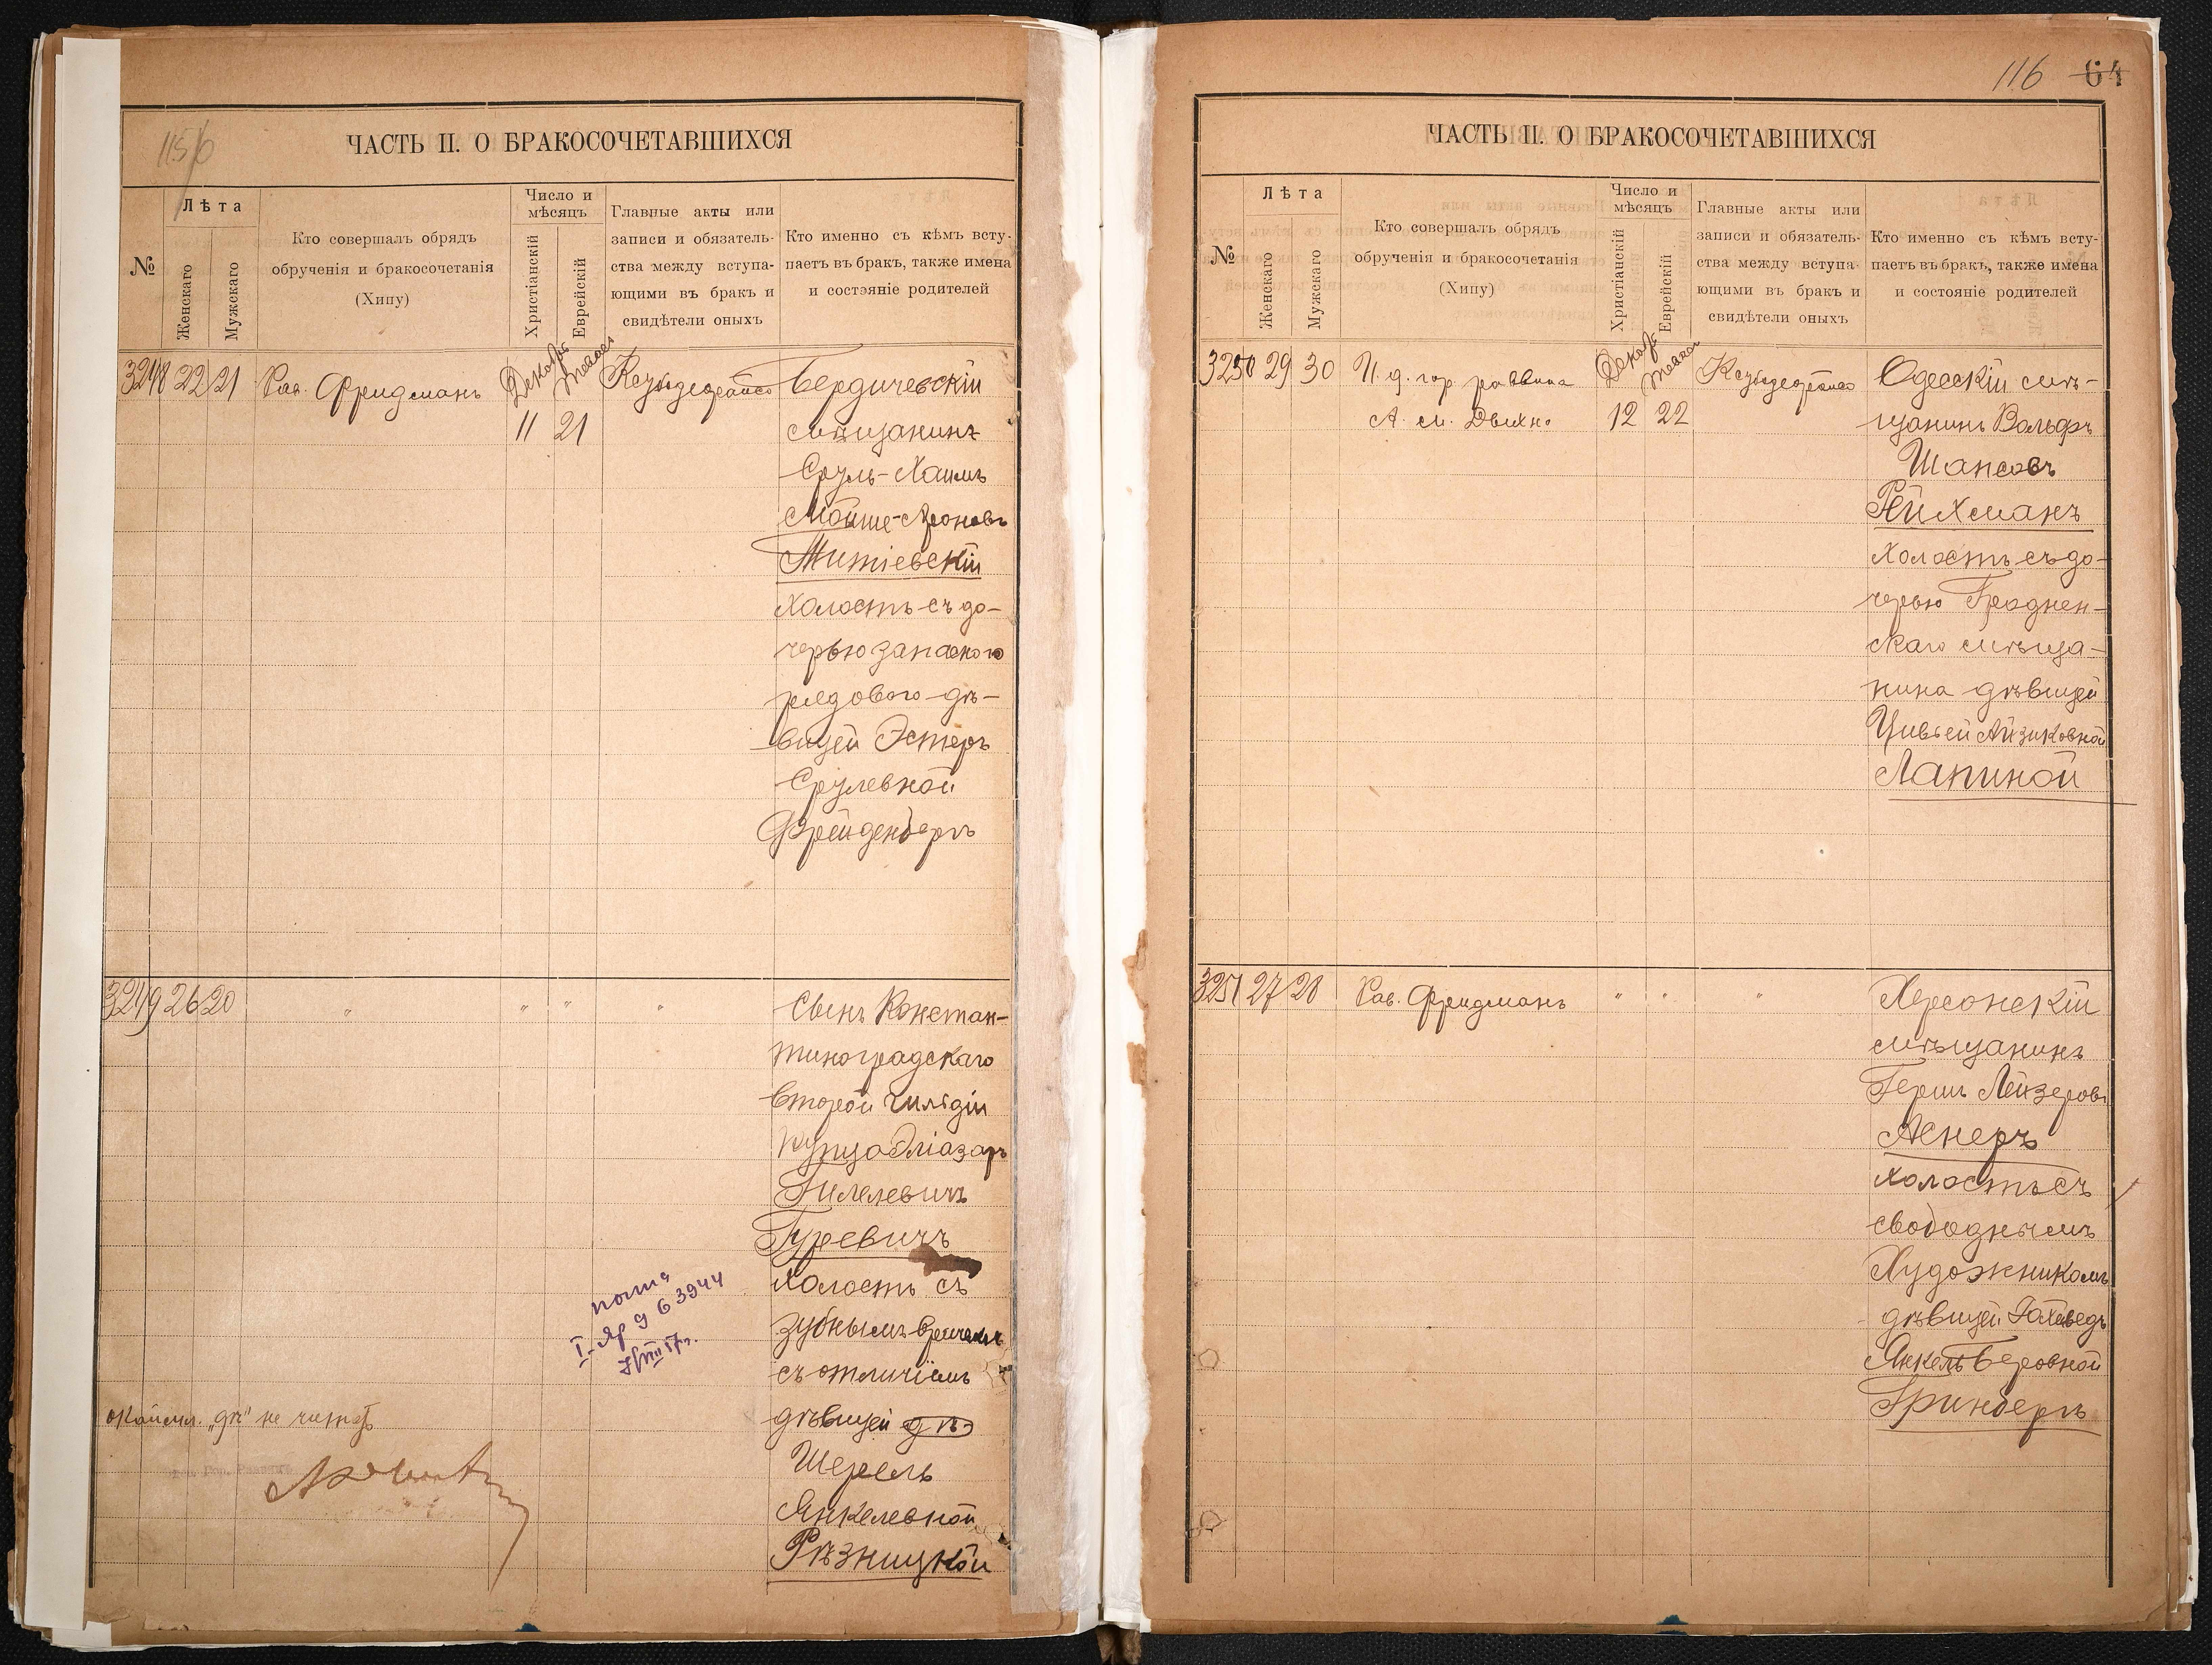 115/6
ЧАСТЬ II. О БРАКОСОЧЕТАВШИХСЯ
№
Лѣта
Женскаго
Мужскаго
Кто совершалъ обрядъ
обрученія и бракосочетанія
(Хипу)
Число и
мѣсяцъ
Христіанскій
Еврейскій
Главные акты или
записи и обязатель-
ства между вступа-
ющими въ бракъ и
свидѣтели оныхъ
Кто именно съ кѣмъ всту-
паетъ въ бракъ, также имена
и состояніе родителей
3248 22 21 Рав. Фридманъ
11 21
Бердичевскій
мѣщанинъ
Сруль-Хаимъ
Мойше-Ароновъ
Житіевскій
холостъ съ до-
черью запасного
рядового дѣ-
вицей Эстеръ
Срулевной
Фрейденбергъ
3249 26 20 " " " "
Сынъ Констан-
тиноградскаго
второй гильдіи
купца Эліазаръ
Гилелевичъ
Гуревичъ
холостъ съ
зубнымъ врачемъ
съ отличіемъ
дѣвицей дѣ
Шерель
Янкелевной
Рѣзницкой
63944
окайм. "дѣ" не читать
116 64
ЧАСТЬ II. О БРАКОСОЧЕТАВШИХСЯ
№
Лѣта
Женскаго
Мужскаго
Кто совершалъ обрядъ
обрученія и бракосочетанія
(Хипу)
Число и
мѣсяцъ
Христіанскій
Еврейскій
Главные акты или
записи и обязатель-
ства между вступа-
ющими въ бракъ и
свидѣтели оныхъ
Кто именно съ кѣмъ всту-
паетъ въ бракъ, также имена
и состояніе родителей
3250 29 30 И. д. гор. раввина
А. М.
12 22
Одесскій мѣ-
щанинъ Вольфъ
Шапсовъ
Рейхманъ
холостъ съ до-
черью Гроднен-
скаго мѣща-
нина дѣвицей
Цивьей Айзиковной
Лапиной
3251 27 28 Рав. Фридманъ " " "
Херсонскій
мѣщанинъ
Гершъ Лейзеровъ
Аснеръ
холостъ съ
свободнымъ
Художникомъ
дѣвицей
Янкель Беровной
Гринбергъ